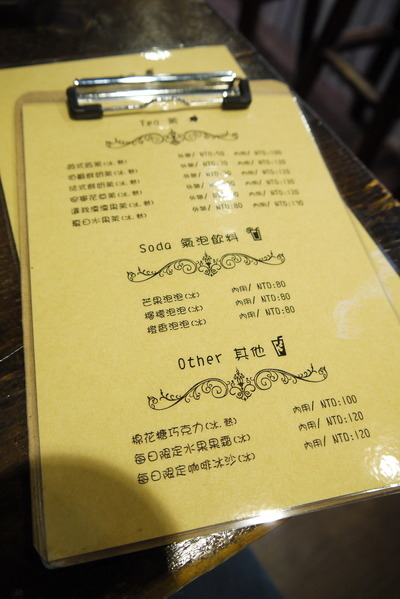 Tea 茶
古式奶茶(冰.熱) 外帶/ NTD:50 內用/ NTD:100
伯爵鮮奶茶(冰.熱) 外帶/ NTD:70 內用/ NTD:120
法式鮮奶茶(冰.熱) 外帶/ NTD: 內用/ NTD:120
寧靜花草茶(冰.熱) 外帶/ 內用/ NTD:120
濃我濃濃果茶(冰.熱) 外帶/ NTD: 內用/ NTD:120
夏日水果茶(冰.熱) 外帶/ NTD:80 內用/ NTD:130
Soda 氣泡飲料
芒果泡泡(冰) 內用/ NTD:80
檸檬泡泡(冰) 內用/ NTD:80
橙香泡泡(冰) 內用/ NTD:80
Other 其他
棉花糖巧克力(冰.熱) 內用/ NTD:100
每日限定水果果霜(冰) 內用/ NTD:120
每日限定咖啡冰沙(冰) 內用/ NTD:120